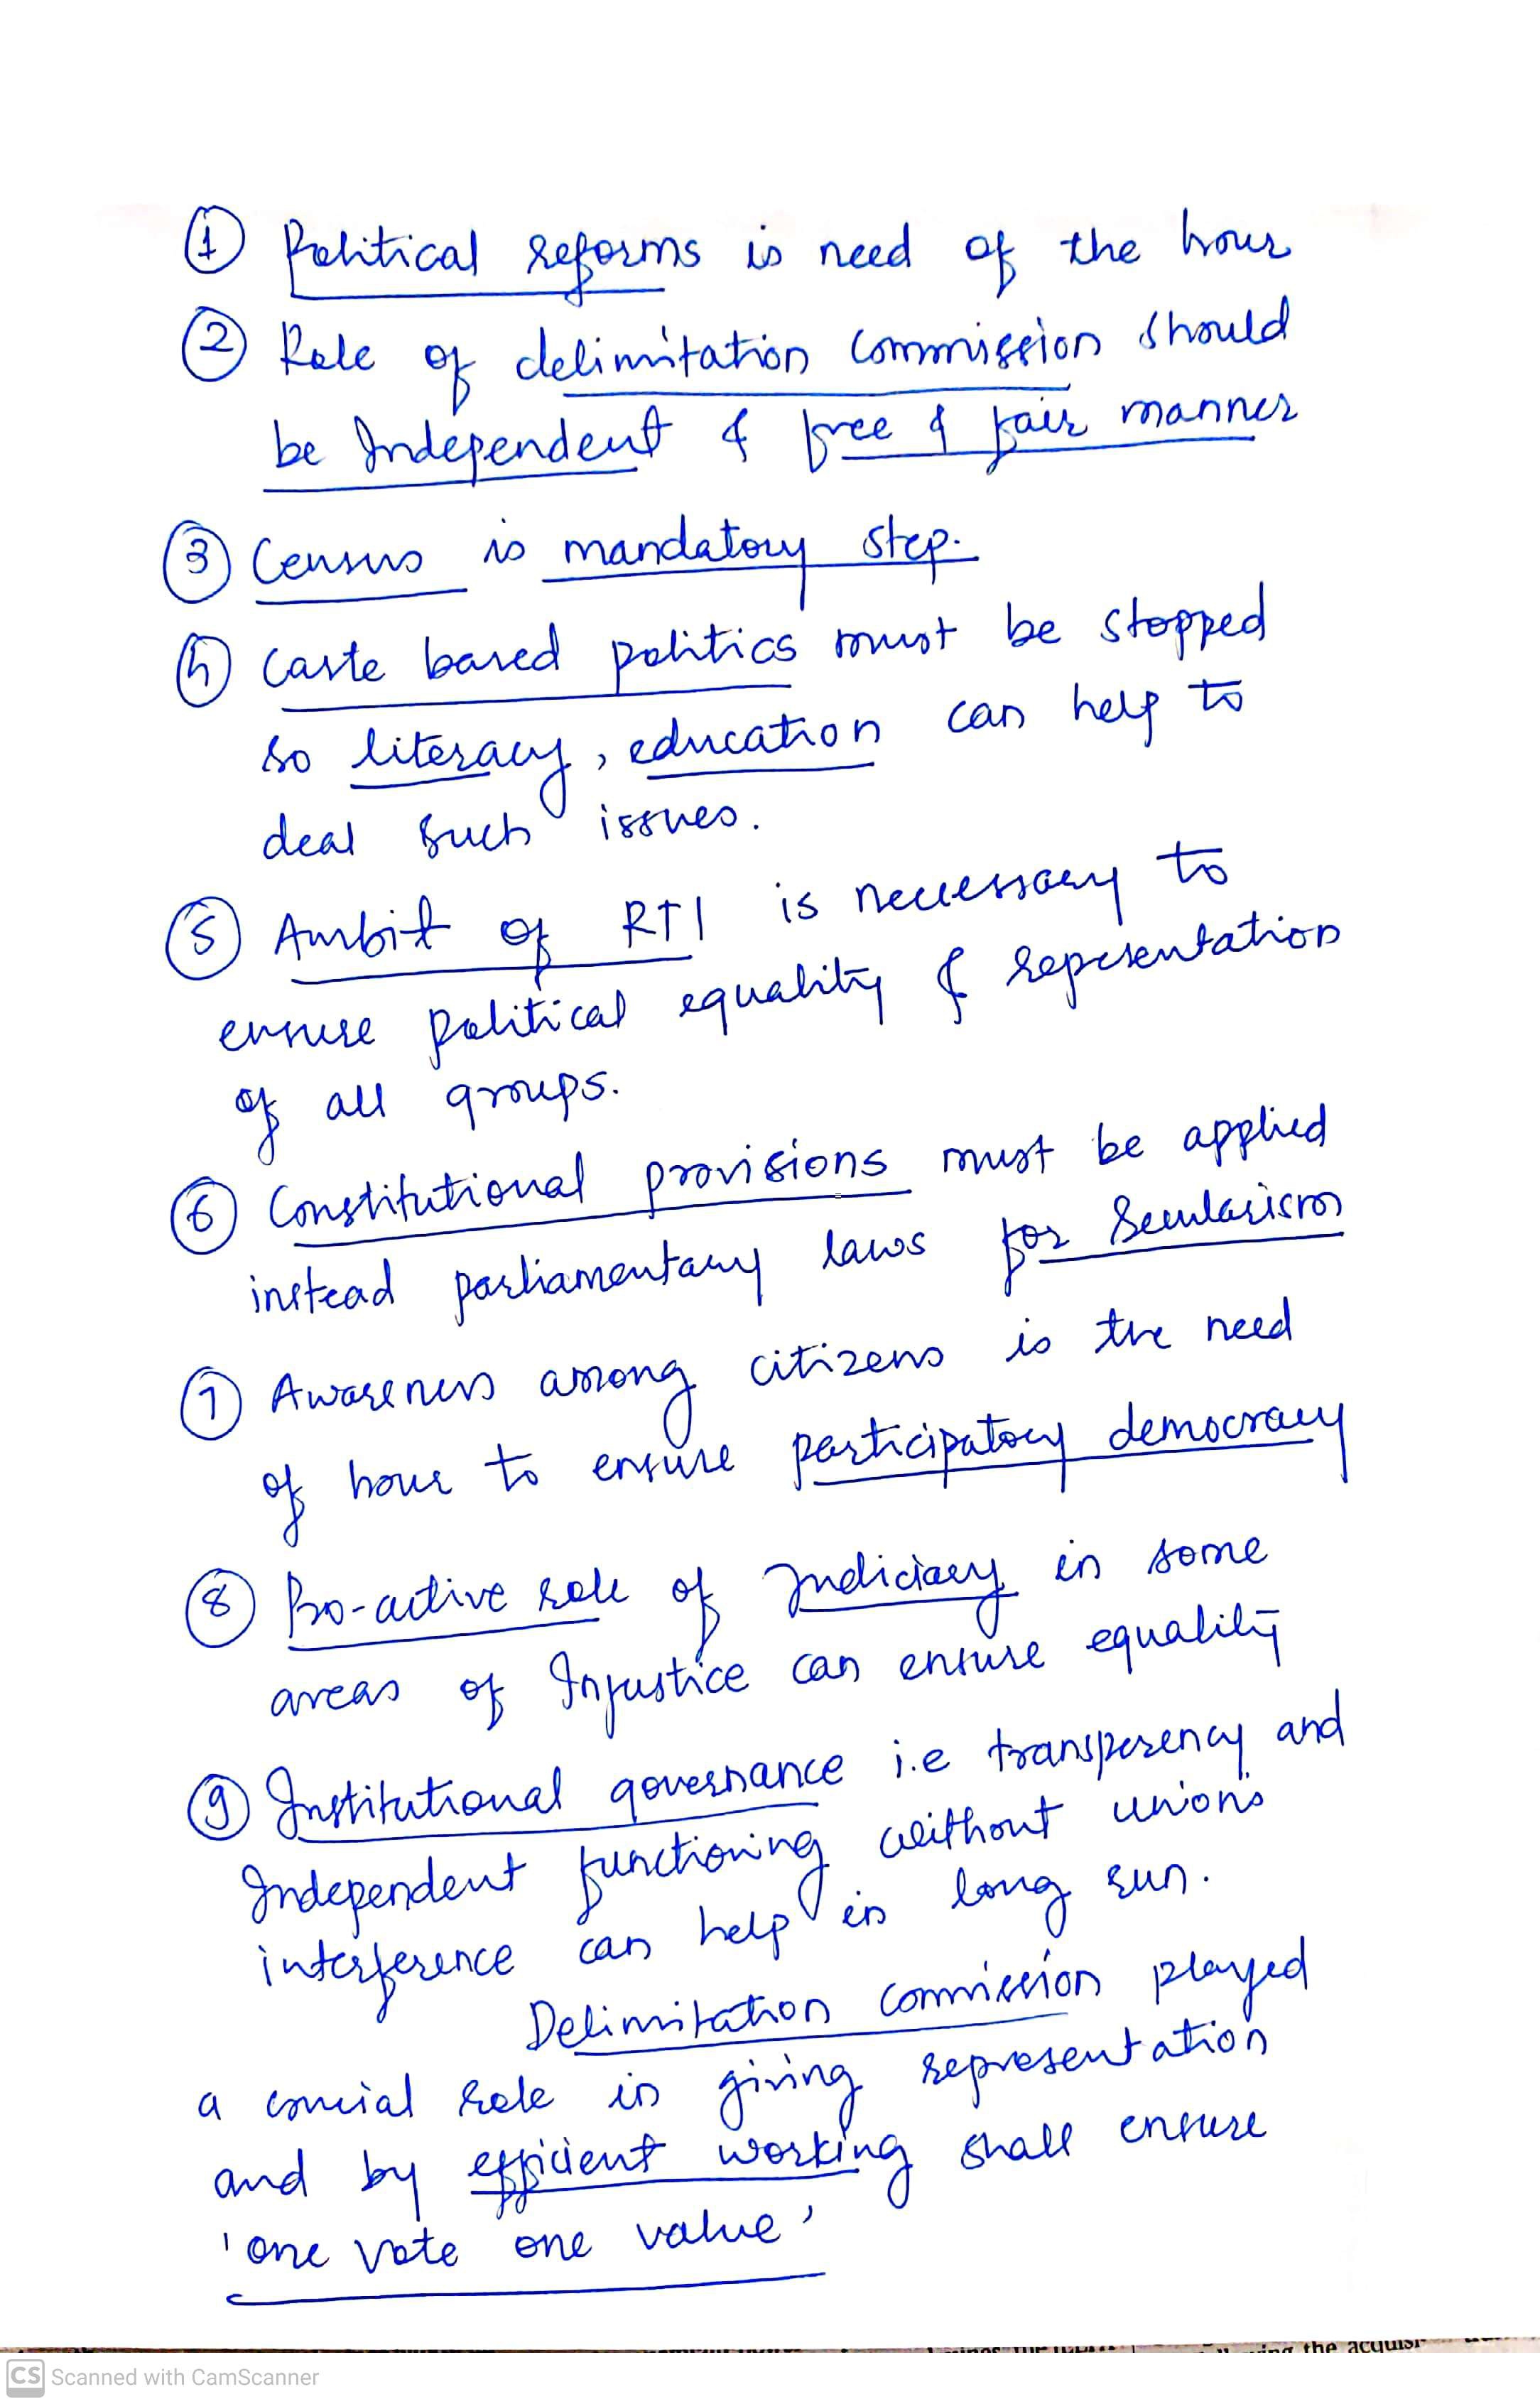 ① Political reforms is need of the hour
② Role of delimitation commission should
be Independent & free & fair manner
③ Census is mandatory step.
④ Caste based politics must be stopped
so literacy, education can help to
deal such issues.
⑤ Ambit of RTI is neccessary to
ensure political equality & representation
of all groups.
⑥ Constitutional provisions must be applied
instead parliamentary laws for Secularism
⑦ Awareness among citizens is the need
of hour to ensure participatory democracy
⑧ Pro-active role of Judiciary in some
areas of Injustice can ensure equality
⑨ Institutional governance i.e transperency and
Independent functioning without union's
interference can help in long run.
Delimitation commission played
a crucial role in giving representation
and by efficient working shall ensure
'one vote one value'
the acquisi
CS Scanned with CamScanner